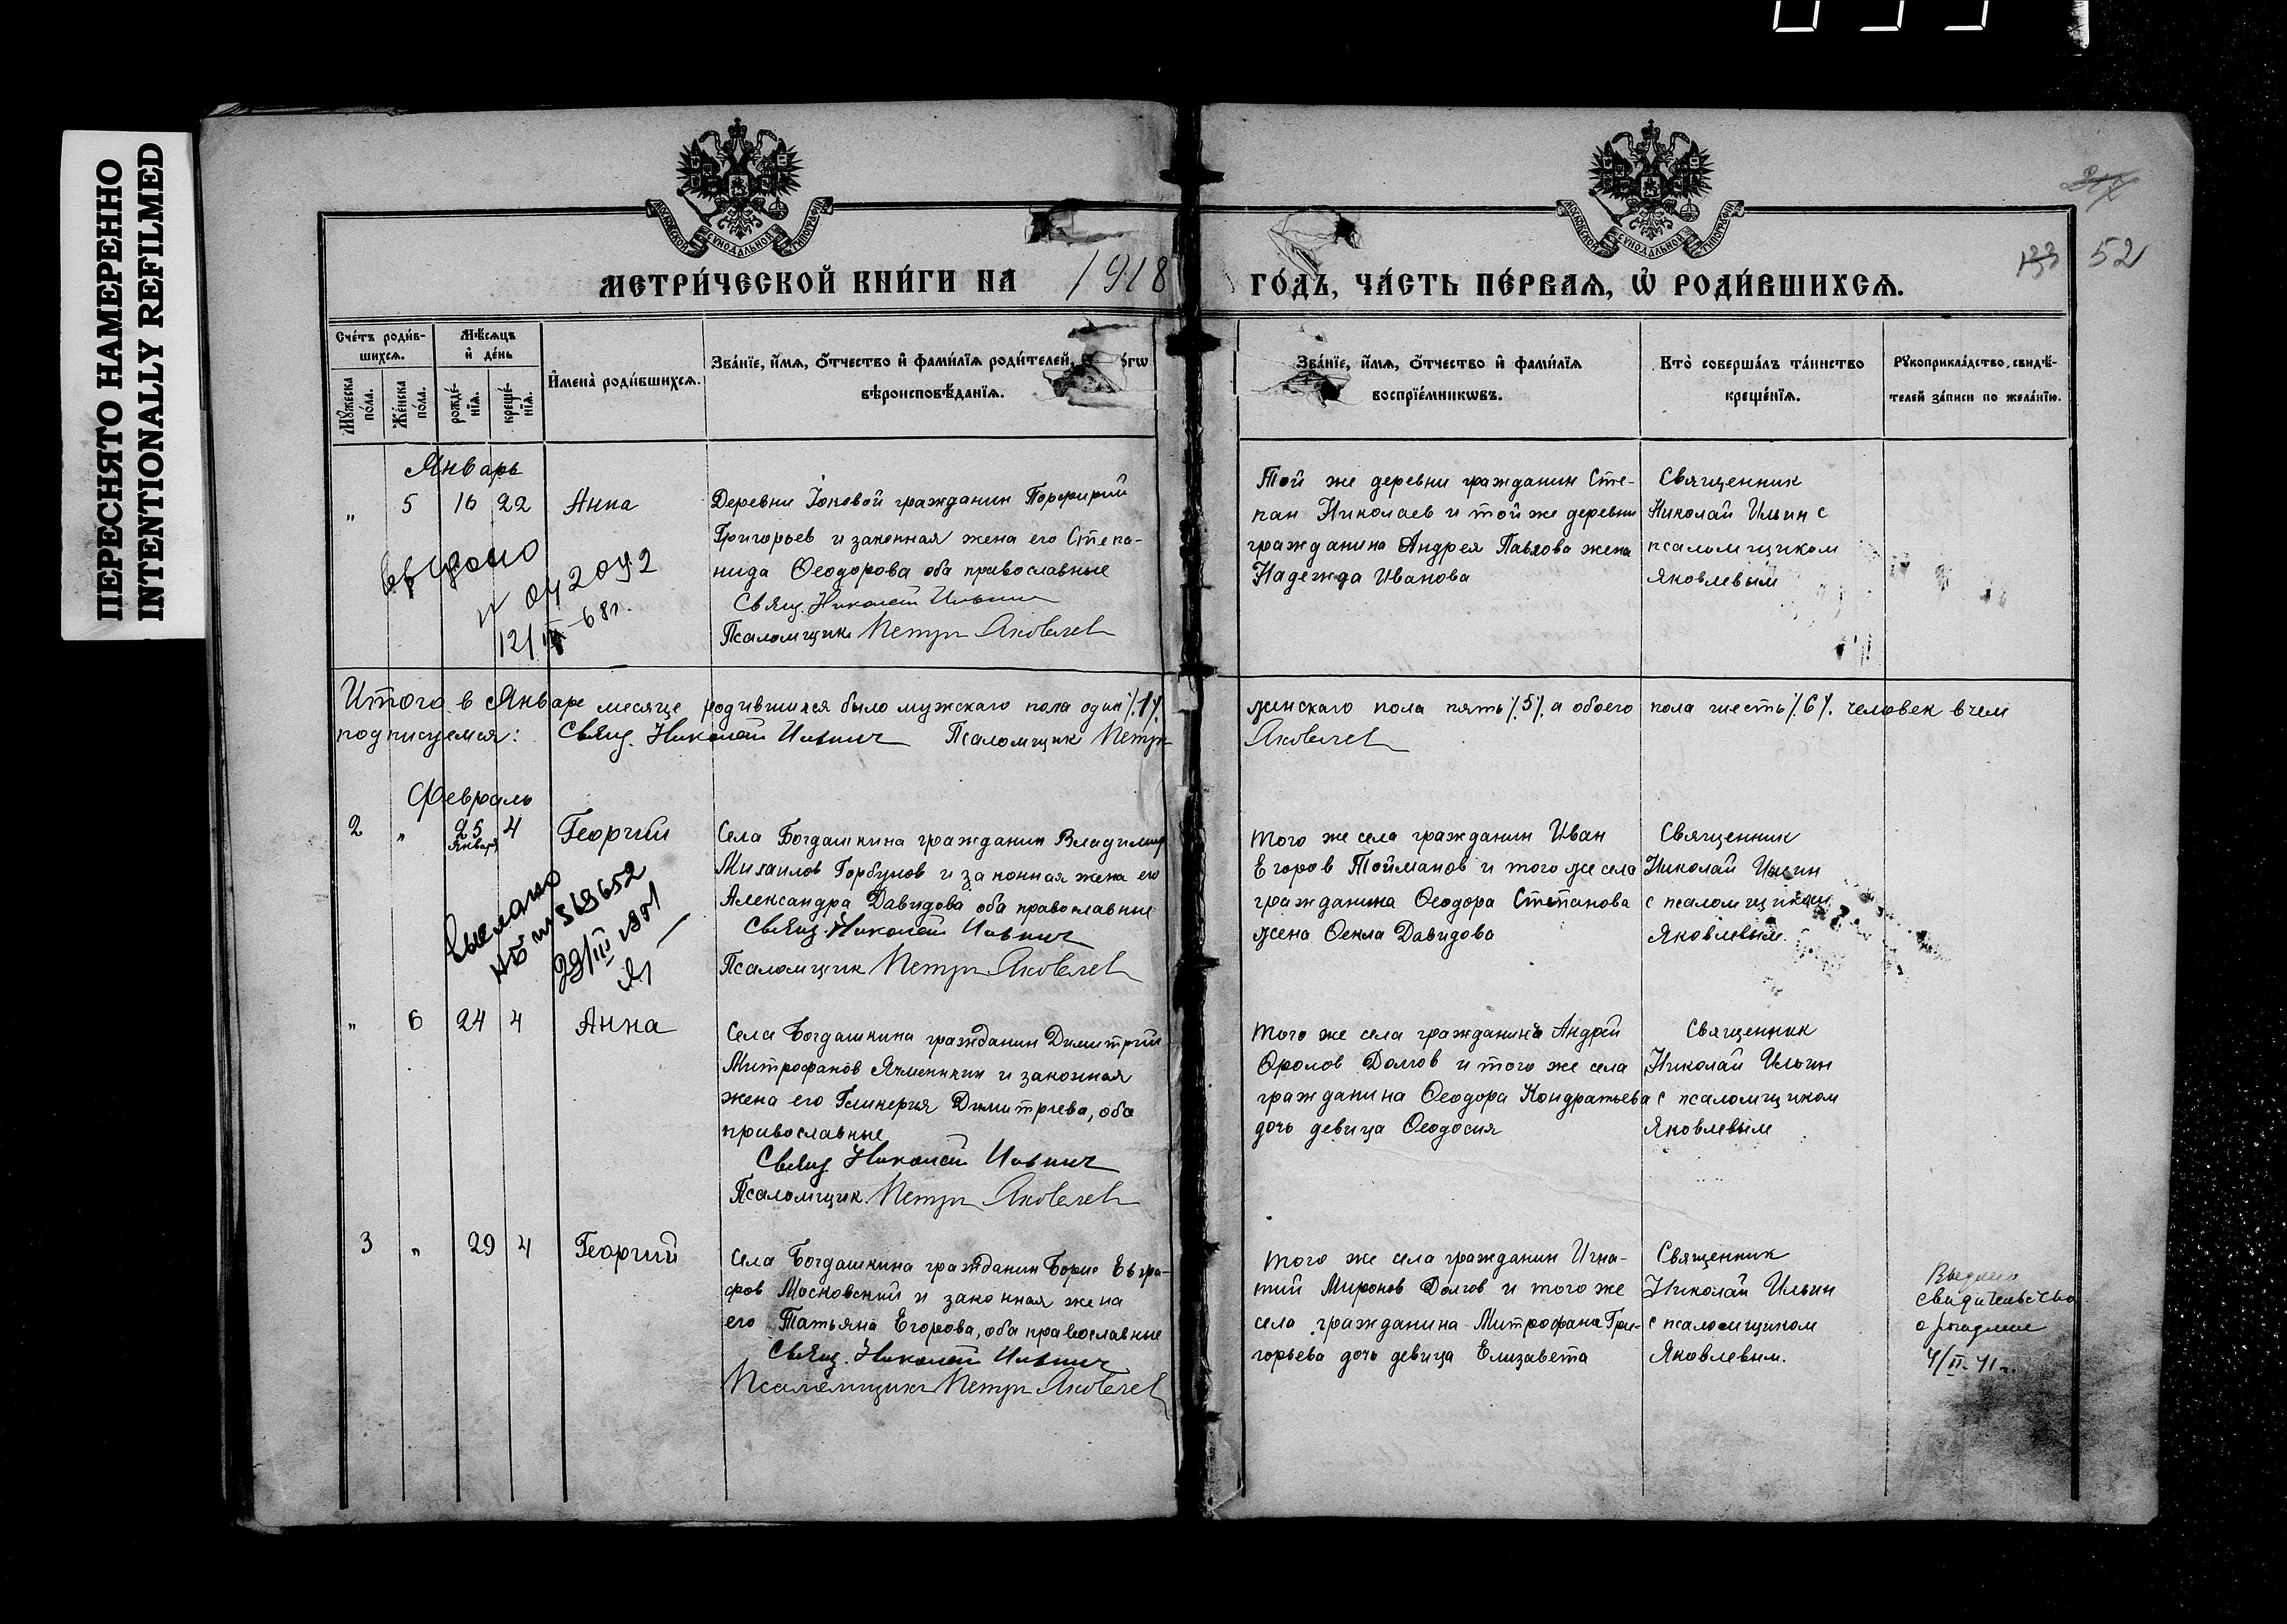 ПЕРЕСНЯТО НАМЕРЕННО
INTENTIONALLY REFILMED
МОСКОВСКОЙ СѴНОДАЛЬНОЙ ТИПОГРАФІИ
МОСКОВСКОЙ СѴНОДАЛЬНОЙ ТИПОГРАФІИ
52
МЕТРИ́ЧЕСКОЙ КНИ́ГИ НА 1918 ГО́ДЪ, ЧА́СТЬ ПЕ́РВАѦ, Ѡ҆ РОДИ́ВШИХСѦ.
Сче́тъ роди́в-
шихсѧ.
Мꙋ́жеска по́ла.
Же́нска по́ла.
Мѣ́сѧцъ
и҆ де́нь
рожде́-
нїѧ.
креще́-
нїѧ.
И҆мена̀ роди́вшихсѧ.
Зва́нїе, и҆́мѧ, ѻ҆́тчество и҆ фами́лїѧ роди́телей,
вѣроисповѣ́данїѧ.
Зва́нїе, и҆́мѧ, ѻ҆́тчество и҆ фами́лїѧ
воспрїе́мникѡвъ.
Кто̀ соверша́лъ та́инство
креще́нїѧ.
Рꙋкоприкла́дство, свидѣ́-
телей за́писи по жела́нїю.
Январь
" 5 16 22 Анна
Деревни Юковой гражданин Порфирий
Григорьев и законная жена его Степа-
нида Ѳеодорова оба православные
Свящ. Николай Ильин
Псаломщик Петр Яковлев
Той же деревни гражданин Сте-
пан Николаев и той же деревни
гражданина Андрея Павлова жена
Надежда Иванова
Священник
Николай Ильин с
псаломщиком
Яковлевым
12/IX-68г.
Итого в Январе месяце родившихся было мужскаго пола один ./.1./. женскаго пола пять ./.5./. а обоего пола шесть ./.6./. человек в чем
подписуемся: Свящ. Николай Ильин Псаломщик Петр Яковлев
Февраль
2 " 25 4 Георгий
Января
Села Богдашкина гражданин Владимир
Михаилов Горбунов и законная жена его
Александра Давидова оба православные
Свящ. Николай Ильин
Псаломщик Петр Яковлев
Того же села гражданин Иван
Егоров Тойманов и того же села
гражданина Ѳеодора Степанова
жена Ѳекла Давидова
Священник
Николай Ильин
с псаломщиком
Яковлевым.
Выслано
" 6 24 4 Анна
Села Богдашкина гражданин Димитрий
Митрофанов Ячменкин и законная
жена его Гликерия Димитриева, оба
православные
Свящ. Николай Ильин
Псаломщик Петр Яковлев
Того же села гражданин Андрей
Фролов Долгов и того же села
гражданина Ѳеодора Кондратьева
дочь девица Ѳеодосия
Священник
Николай Ильин
с псаломщиком
Яковлевым
3 " 29 4 Георгий
Села Богдашкина гражданин Борис Евгра-
фов Московский и законная жена
его Татьяна Егорова, оба православные
Свящ. Николай Ильин
Псаломщик Петр Яковлев
Того же села гражданин Игна-
тий Миронов Долгов и того же
села гражданина Митрофана Гри-
горьева дочь девица Елизавета
Священник
Николай Ильин
с псаломщиком
Яковлевым.
Выдано
свидетельство
4/II-41г.